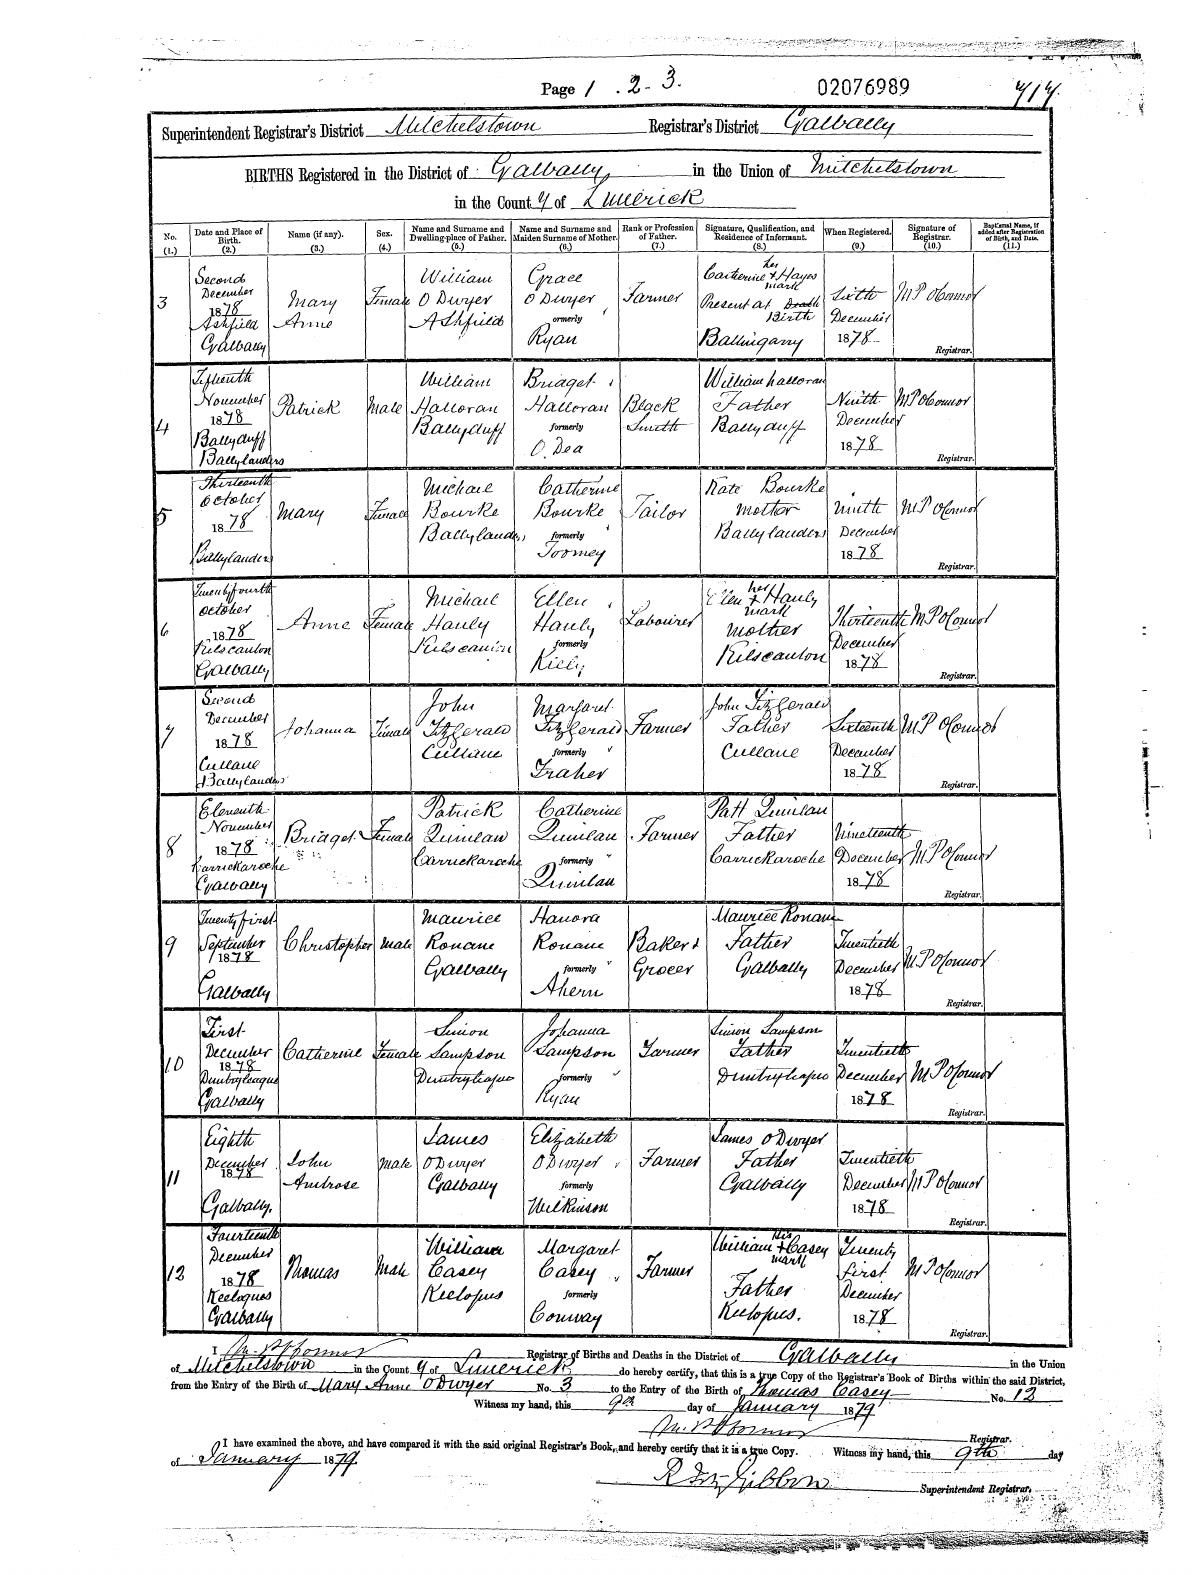 Page 1 . 2 - 3.
02076989
Superintendent Registrar's District Mitchelstown Registrar's District Galbally
BIRTHS Registered in the District of Galbally, in the Union of Mitchelstown
in the County of Limerick
No. (1.) Date and Place of Birth. (2.) Name (if any). (3.) Sex. (4.) Name and Surname and Dwelling-place of Father. (5.) Name and Surname and Maiden Surname of Mother. (6.) Rank or Profession of Father. (7.) Signature, Qualification, and Residence of Informant. (8.) When Registered. (9.) Signature of Registrar. (10.) Baptismal Name, if added after Registration of Birth, and Date. (11.)
3 Second December 1878 Ashfield Galbally Mary Anne Female William O Dwyer Ashfield Grace O Dwyer formerly Ryan Farmer Catherine + Hayes her mark Present at Death Birth Ballingarry Sixth December 1878 M P O'Connor Registrar.
4 Fifteenth November 1878 Ballyduff Ballylanders Patrick Male William Halloran Ballyduff Bridget Halloran formerly O. Dea Black Smith William Halloran Father Ballyduff Ninth December 1878 M P O'Connor Registrar.
5 Thirteenth October 1878 Ballylanders Mary Female Michael Bourke Ballylanders Catherine Bourke formerly Toomey Tailor Kate Bourke mother Ballylanders Ninth December 1878 M P O'Connor Registrar.
6 Twentyfourth October 1878 Kilscanlon Galbally Anne Female Michael Hanly Ellen Hanly formerly Kiely Labourer Ellen + Hanly her mark Mother Kilscanlon Thirteenth December 1878 M P O'Connor Registrar.
7 Second December 1878 Cullane Ballylanders Johanna Female John FitzGerald Cullane Margaret FitzGerald formerly Fraher Farmer John FitzGerald Father Cullane Sixteenth December 1878 M P O'Connor Registrar.
8 Eleventh November 1878 Carrickaroche Galbally Bridget Female Patrick Quinlan Carrickaroche Catherine Quinlan formerly Quinlan Farmer Patt Quinlan Father Carrickaroche Nineteenth December 1878 M P O'Connor Registrar.
9 Twenty first September 1878 Galbally Christopher Male Maurice Ronane Galbally Hanora Ronane formerly Ahern Baker + Grocer Maurice Ronane Father Galbally Twentieth December 1878 M P O'Connor Registrar.
10 First December 1878 Galbally Catherine Female Simon Sampson Johanna Sampson formerly Ryan Farmer Simon Sampson Father Twentieth December 1878 M P O'Connor Registrar.
11 Eighth December 1878 Galbally. John Ambrose Male James O Dwyer Galbally Elizabeth O Dwyer formerly Wilkinson Farmer James O Dwyer Father Galbally Twentieth December 1878 M P O'Connor Registrar.
12 Fourteenth December 1878 Keeloques Galbally Thomas Male William Casey Keelopus Margaret Casey formerly Conway Farmer William + Casey his mark Father Keelopus. Twenty first December 1878 M P O'Connor Registrar.
I M. P. O'Connor Registrar of Births and Deaths in the District of Galbally in the Union
of Mitchelstown in the County of Limerick do hereby certify, that this is a true Copy of the Registrar's Book of Births within the said District,
from the Entry of the Birth of Mary Anne O Dwyer No. 3 to the Entry of the Birth of Thomas Casey No. 12
Witness my hand, this 9th day of January 1879
M. P. O'Connor Registrar.
I have examined the above, and have compared it with the said original Registrar's Book, and hereby certify that it is a true Copy. Witness my hand, this 9th day
of January 1879.
R FitzGibbon Superintendent Registrar.